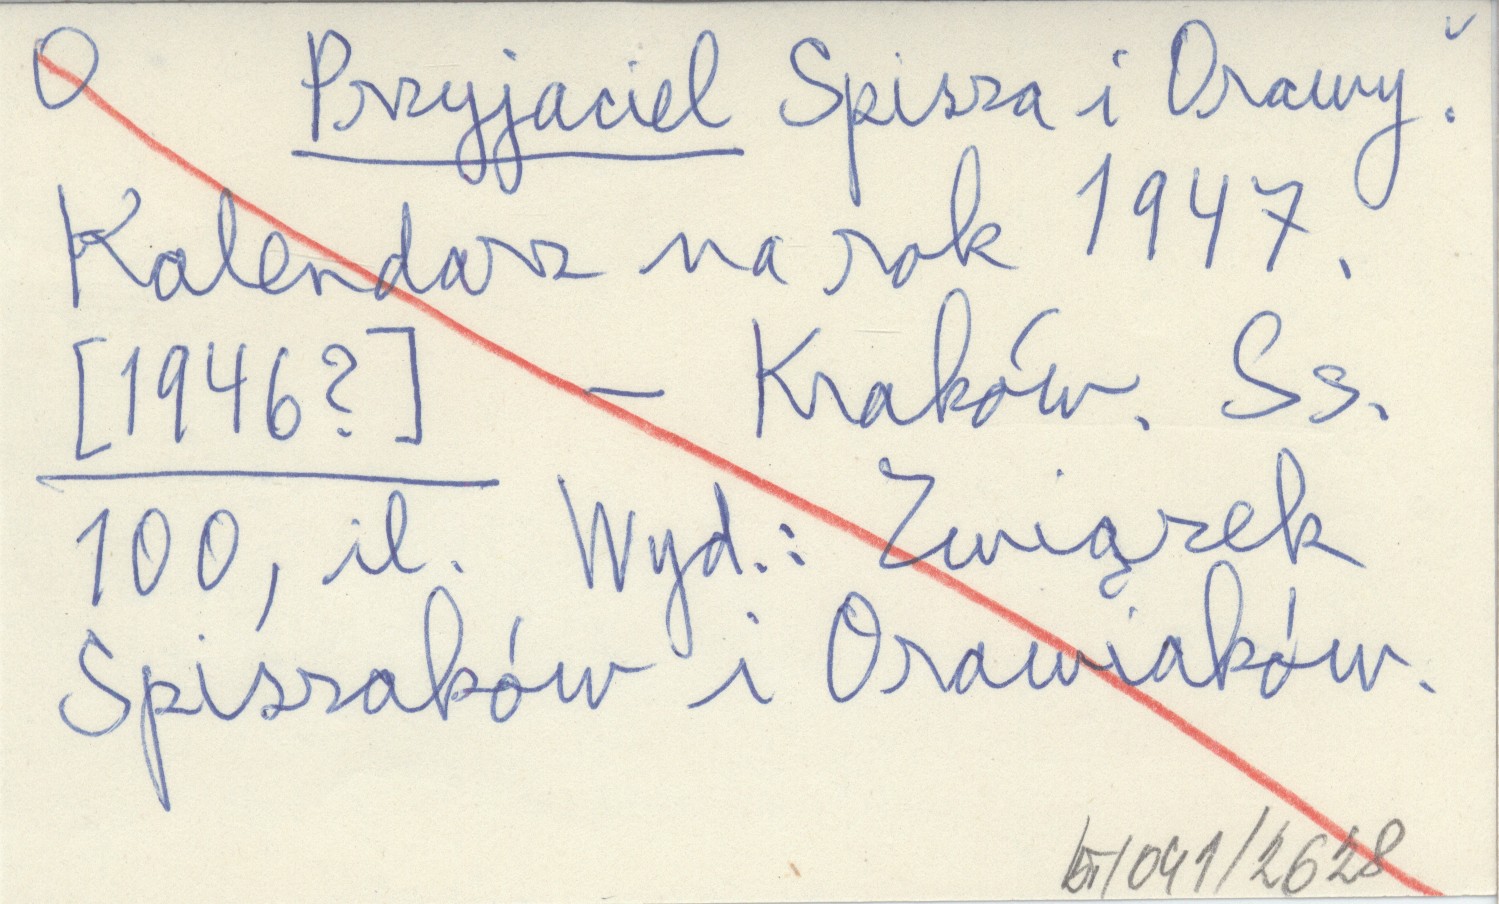 O Przyjaciel Spisza i Orawy.
Kalendarz na rok 1947.
[1946?] – Kraków. Ss.
100, il. Wyd.: Związek
Spiszaków i Orawiaków.
/041/2628